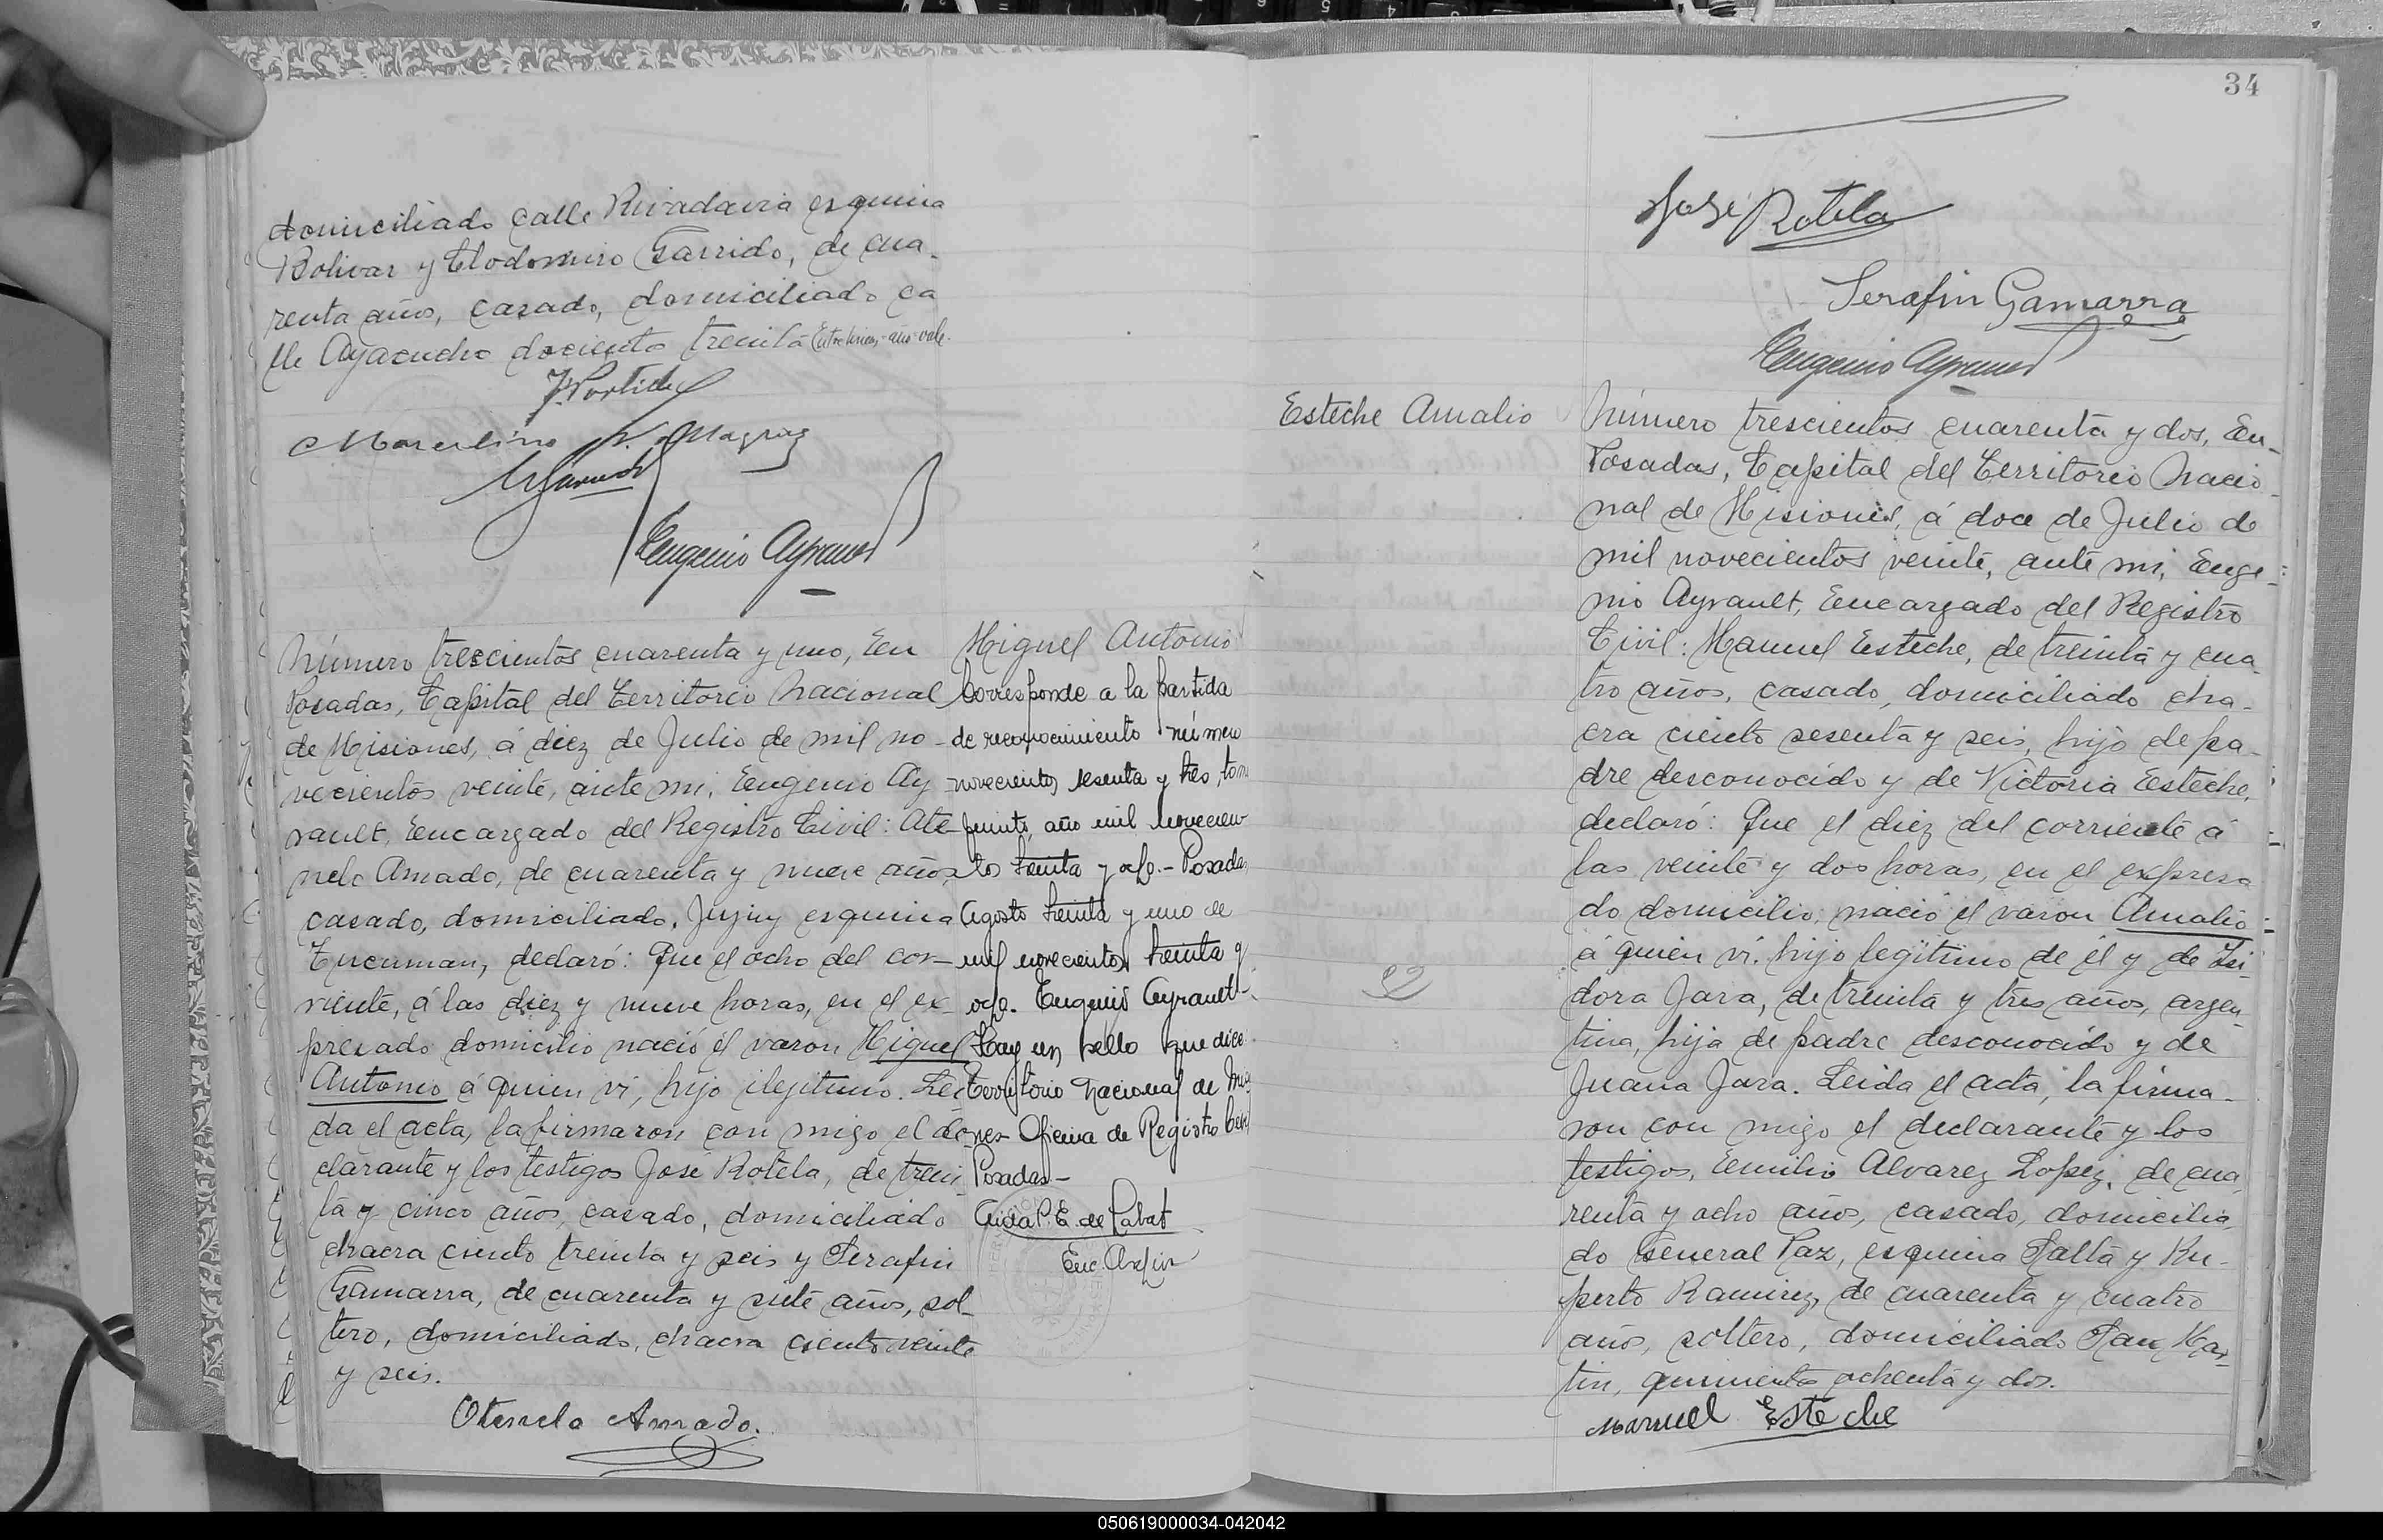 domiciliado calle Rivadavia esquina
Bolivar y Clodomiro Garrido, de cua-
renta años, casado, domiciliado ca
lle Ayacucho dociento treinta (Entre lineas-año-vale.
Eugenio Ayrault
Número trescientos cuarenta y uno, En
Posadas, Capital del Territorio Nacional
de Misiones, á diez de Julio de mil no-
vecientos veinte, ante mi, Eugenio Ay-
rault, Encargado del Registro Civil: Ote-
nelo Amado, de cuarenta y nueve años,
casado, domiciliado, Jujuy esquina
Tucuman, declaró: Que el ocho del cor-
riente, á las diez y nueve horas, en el ex-
presado domicilio nació el varon Miguel
Antonio á quien vi, hijo ilegitimo. Lei
da el acta, la firmaron con migo el de-
clarante y los testigos José Rotela, de trein-
ta y cinco años, casado, domiciliado
chacra ciento treinta y seis y Serafin
Gamarra, de cuarenta y siete años, sol-
tero, domiciliado, chacra ciento veinte
y seis.
Otenelo Amado.
Miguel Antonio
Corresponde a la partida
de reconocimiento número
novecientos sesenta y tres, tom
quinto, año mil novecien
tos treinta y ocho.- Posadas,
Agosto treinta y uno de
mil novecientos treinta y
ocho. Eugenio Ayrault-
Hay un sello que dice:
Territorio Nacional de Misio
nes- Oficina de Registro Civil
Posadas-
34
José Rotela
Serafin Gamarra
Eugenio Ayrault
Esteche Amalio
Número trescientos cuarenta y dos, En
Posadas, Capital del Territorio Nacio-
nal de Misiones, á doce de Julio de
mil novecientos veinte, ante mi, Euge-
nio Ayrault, Encargado del Registro
Civil: Manuel Esteche, de treinta y cua
tro años, casado, domiciliado cha-
cra ciento sesenta y seis, hijo de pa-
dre desconocido y de Victoria Esteche,
declaró: Que el diez del corriente á
las veinte y dos horas, en el expresa
do domicilio, nació el varon Amalio
á quien vi. hijo legitimo de él y de Isi-
dora Jara, de treinta y tres años, argen-
tina, hija de padre desconocido y de
Juana Jara. Leida el acta, la firma-
ron con migo el declarante y los
testigos, Emilio Alvarez Lopez, de cua
renta y ocho años, casado, domicilia
do General Paz, esquina Salta y Ru-
perto Ramirez, de cuarenta y cuatro
años, soltero, domiciliado San Mar-
tin, quiniento ochenta y dos.
Manuel Esteche
050619000034-042042